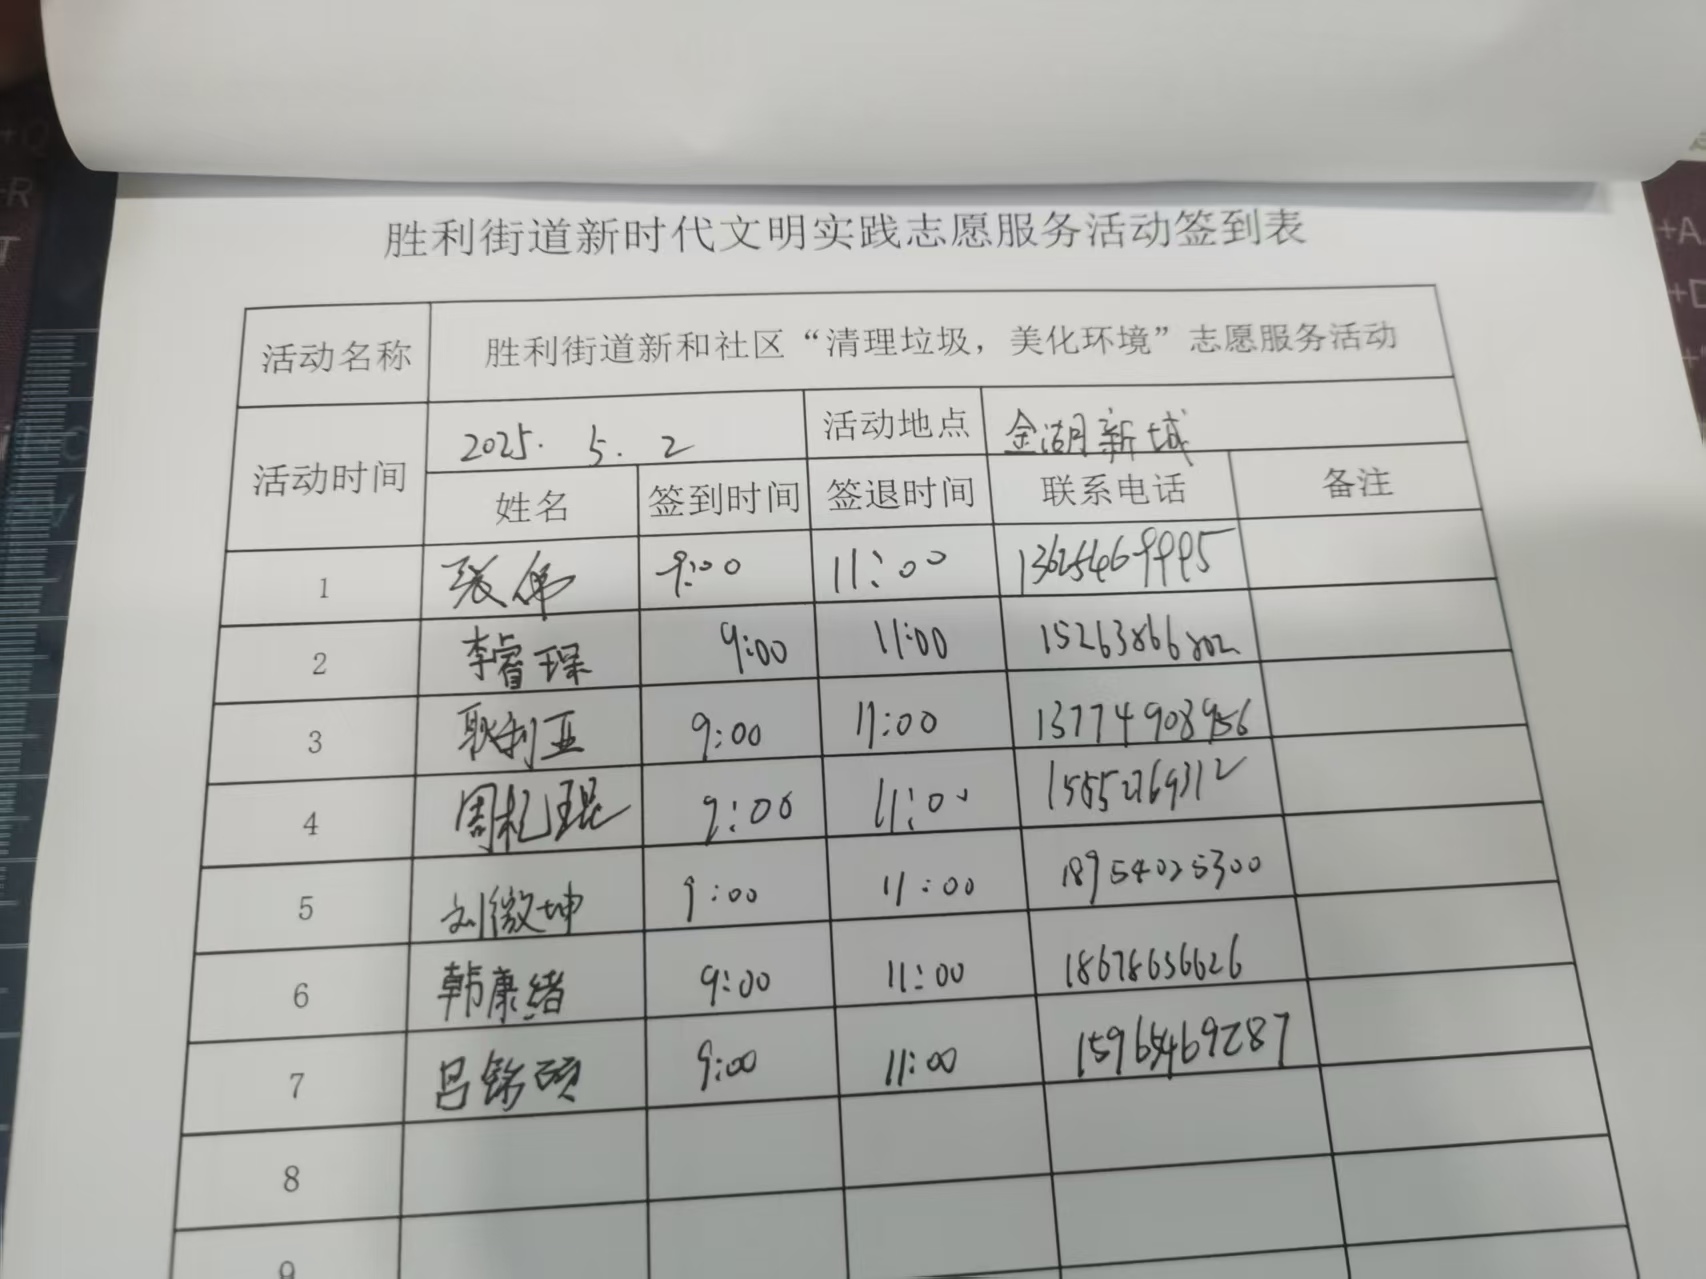 胜利街道新时代文明实践志愿服务活动签到表
活动名称 胜利街道新和社区“清理垃圾，美化环境”志愿服务活动
活动时间 2025. 5. 2 活动地点 金湖新城
姓名 签到时间 签退时间 联系电话 备注
1 张伟 9:00 11:00 13625469995
2 李睿琛 9:00 11:00 15263866802
3 耿利亚 9:00 11:00 13774908956
4 9:00 11:00 15552769312
5 刘微坤 9:00 11:00 18954025300
6 韩康绪 9:00 11:00 18678656626
7 吕铭硕 9:00 11:00 15965469287
8
9